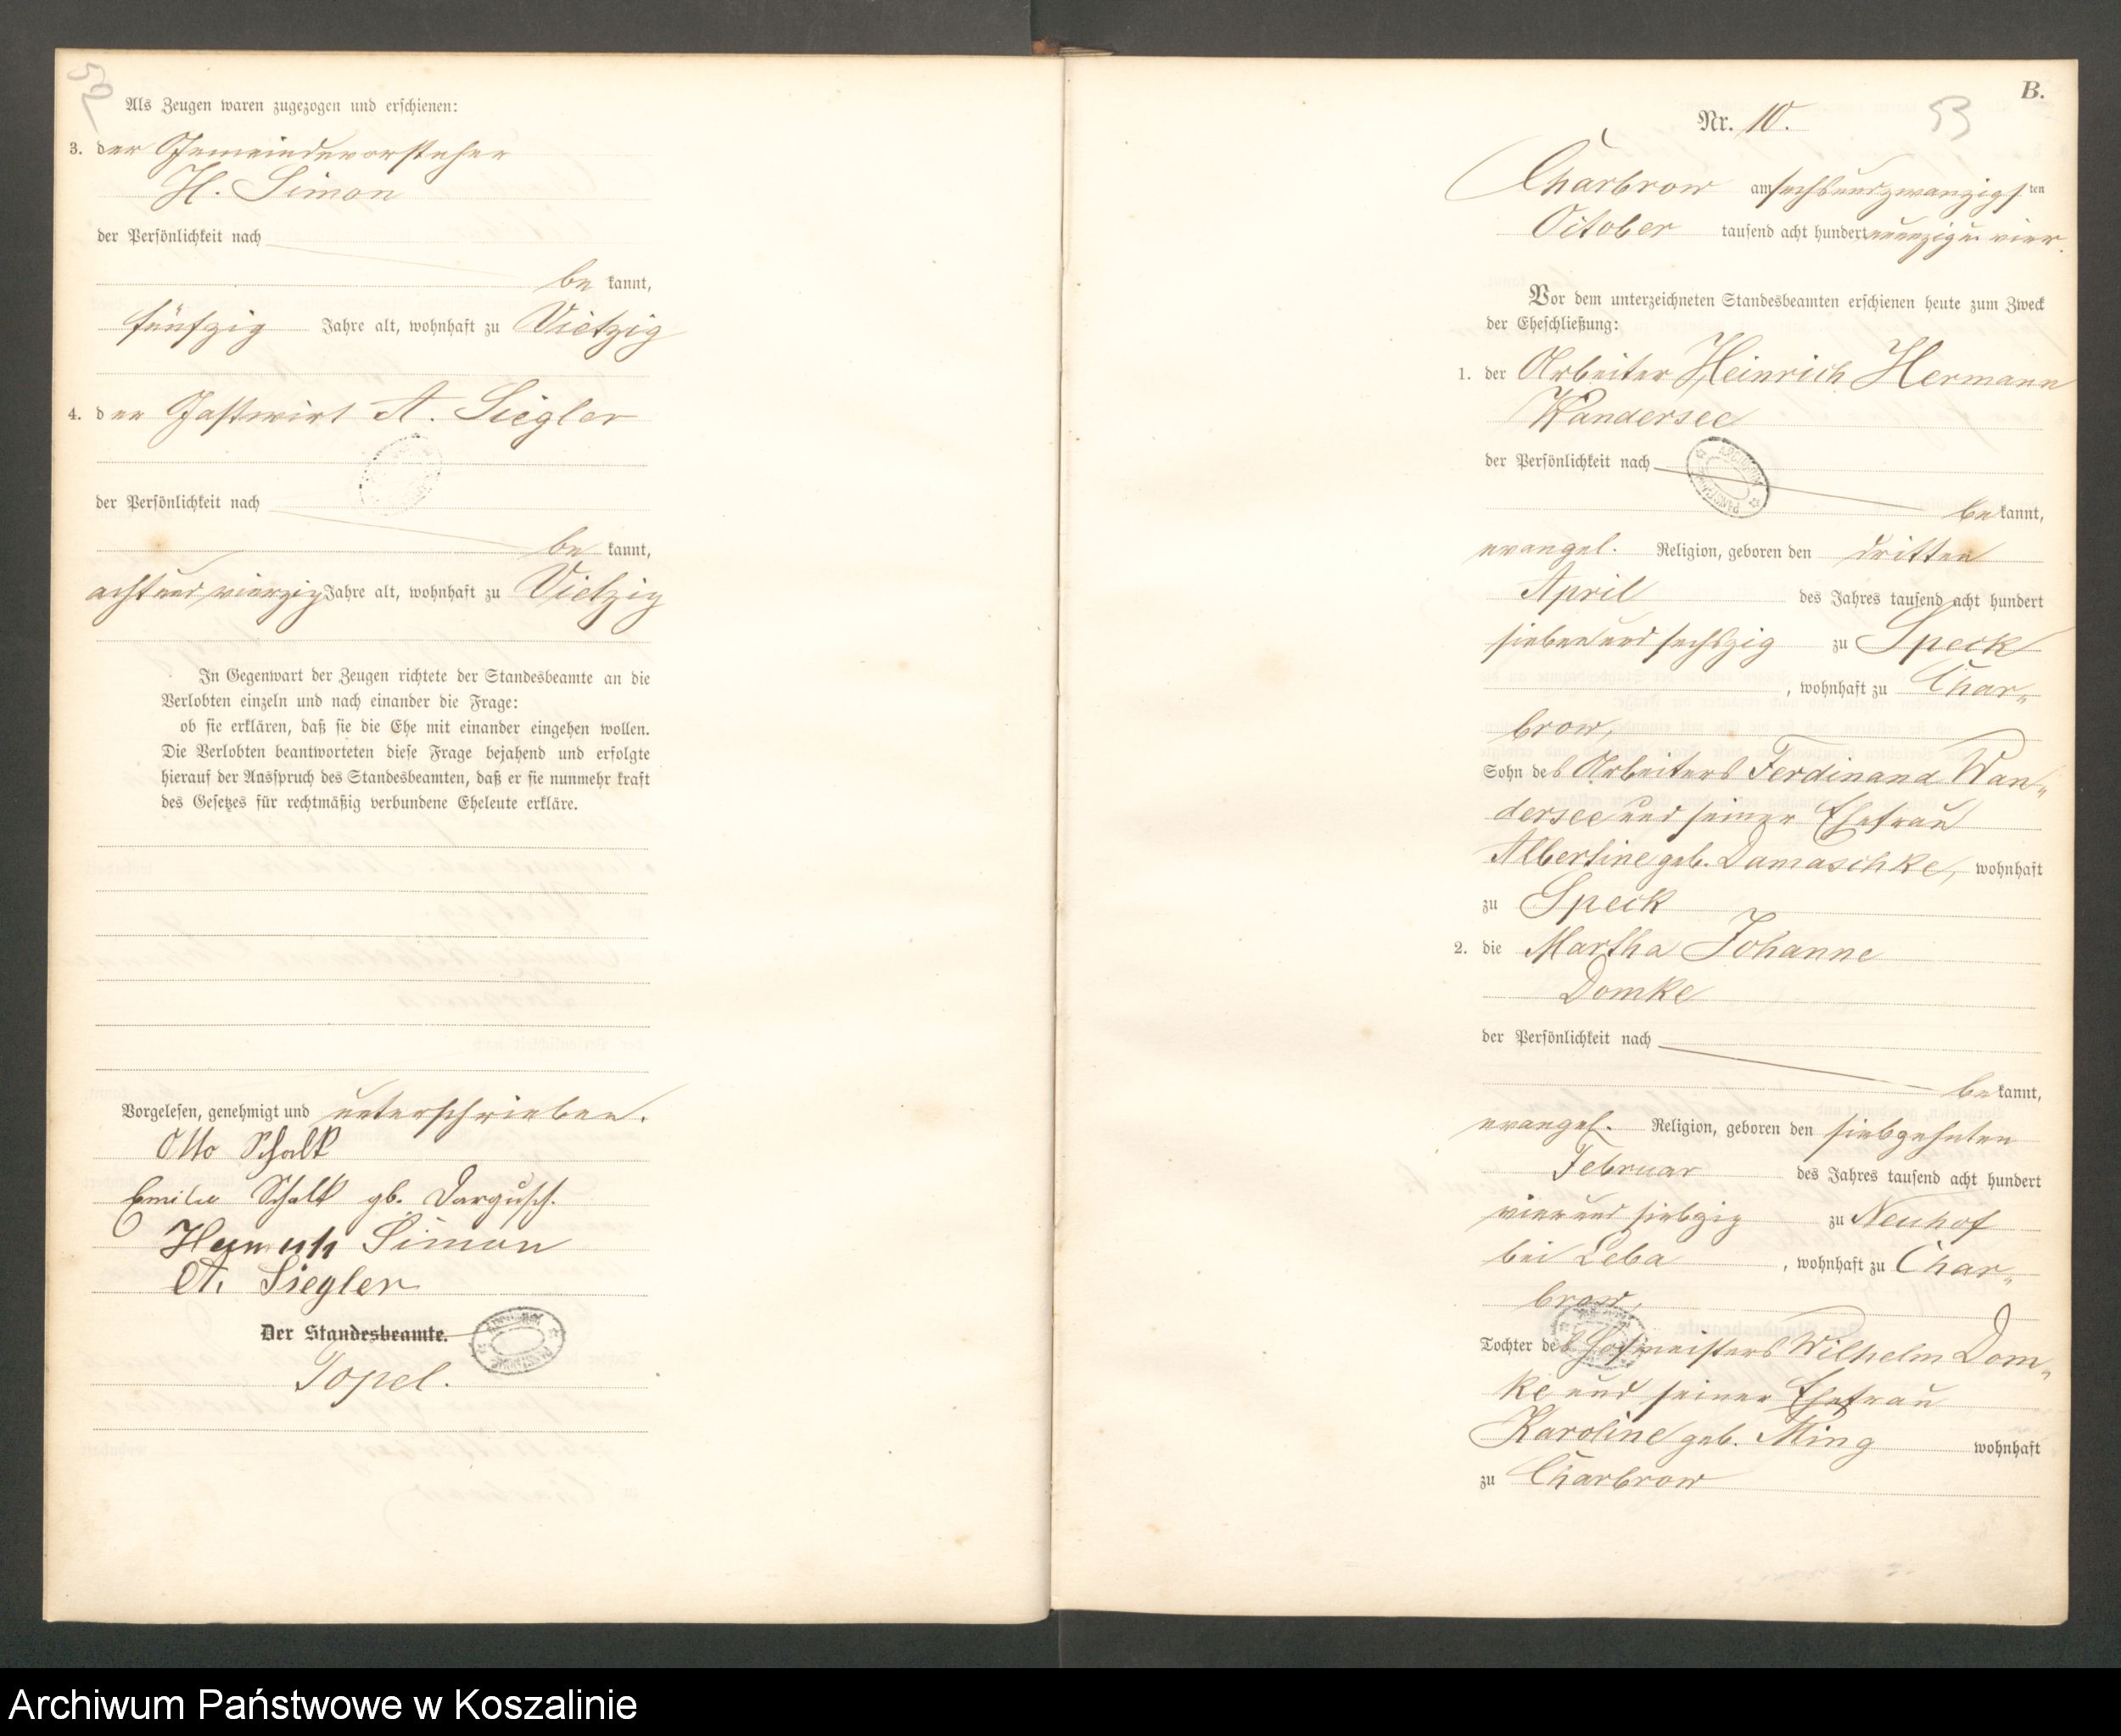 Als Zeugen waren zugezogen und erschienen:
3. der Gemeindevorsteher
H. Simon
der Persönlichkeit nach
be kannt,
fünfzig Jahre alt, wohnhaft zu Vietzig
4. der Gastwirt A. Siegler
der Persönlichkeit nach
be kannt,
achtundvierzig Jahre alt, wohnhaft zu Vietzig
In Gegenwart der Zeugen richtete der Standesbeamte an die
Verlobten einzeln und nach einander die Frage:
ob sie erklären, daß sie die Ehe mit einander eingehen wollen.
Die Verlobten beantworteten diese Frage bejahend und erfolgte
hierauf der Ausspruch des Standesbeamten, daß er sie nunmehr kraft
des Gesetzes für rechtmäßig verbundene Eheleute erkläre.
Vorgelesen, genehmigt und unterschrieben.
Otto Schalk
Emilie Schalk gb. Dargusch.
Simon
A. Siegler
Der Standesbeamte.
Topel.
B.
Nr. 10. 53
Charbrow am sechsundzwanzigsten
October tausend acht hundert neunzig u. vier.
Vor dem unterzeichneten Standesbeamten erschienen heute zum Zweck
der Eheschließung:
1. der Arbeiter Heinrich Hermann
Wandersee
der Persönlichkeit nach
be kannt,
evangel. Religion, geboren den dritten
April des Jahres tausend acht hundert
siebenundsechszig zu Speck
, wohnhaft zu Char-
brow,
Sohn des Arbeiters Ferdinand Wan-
dersee und seiner Ehefrau
Albertine geb. Damaschke, wohnhaft
zu Speck
2. die Martha Johanne
Domke
der Persönlichkeit nach
be kannt,
evangel. Religion, geboren den siebzehnten
Februar des Jahres tausend acht hundert
vierundsiebzig zu Neuhof
bei Leba, wohnhaft zu Char-
brow,
Tochter des Hofmeisters Wilhelm Dom-
ke und seiner Ehefrau
Karoline geb. Ming wohnhaft
zu Charbrow
Archiwum Państwowe w Koszalinie